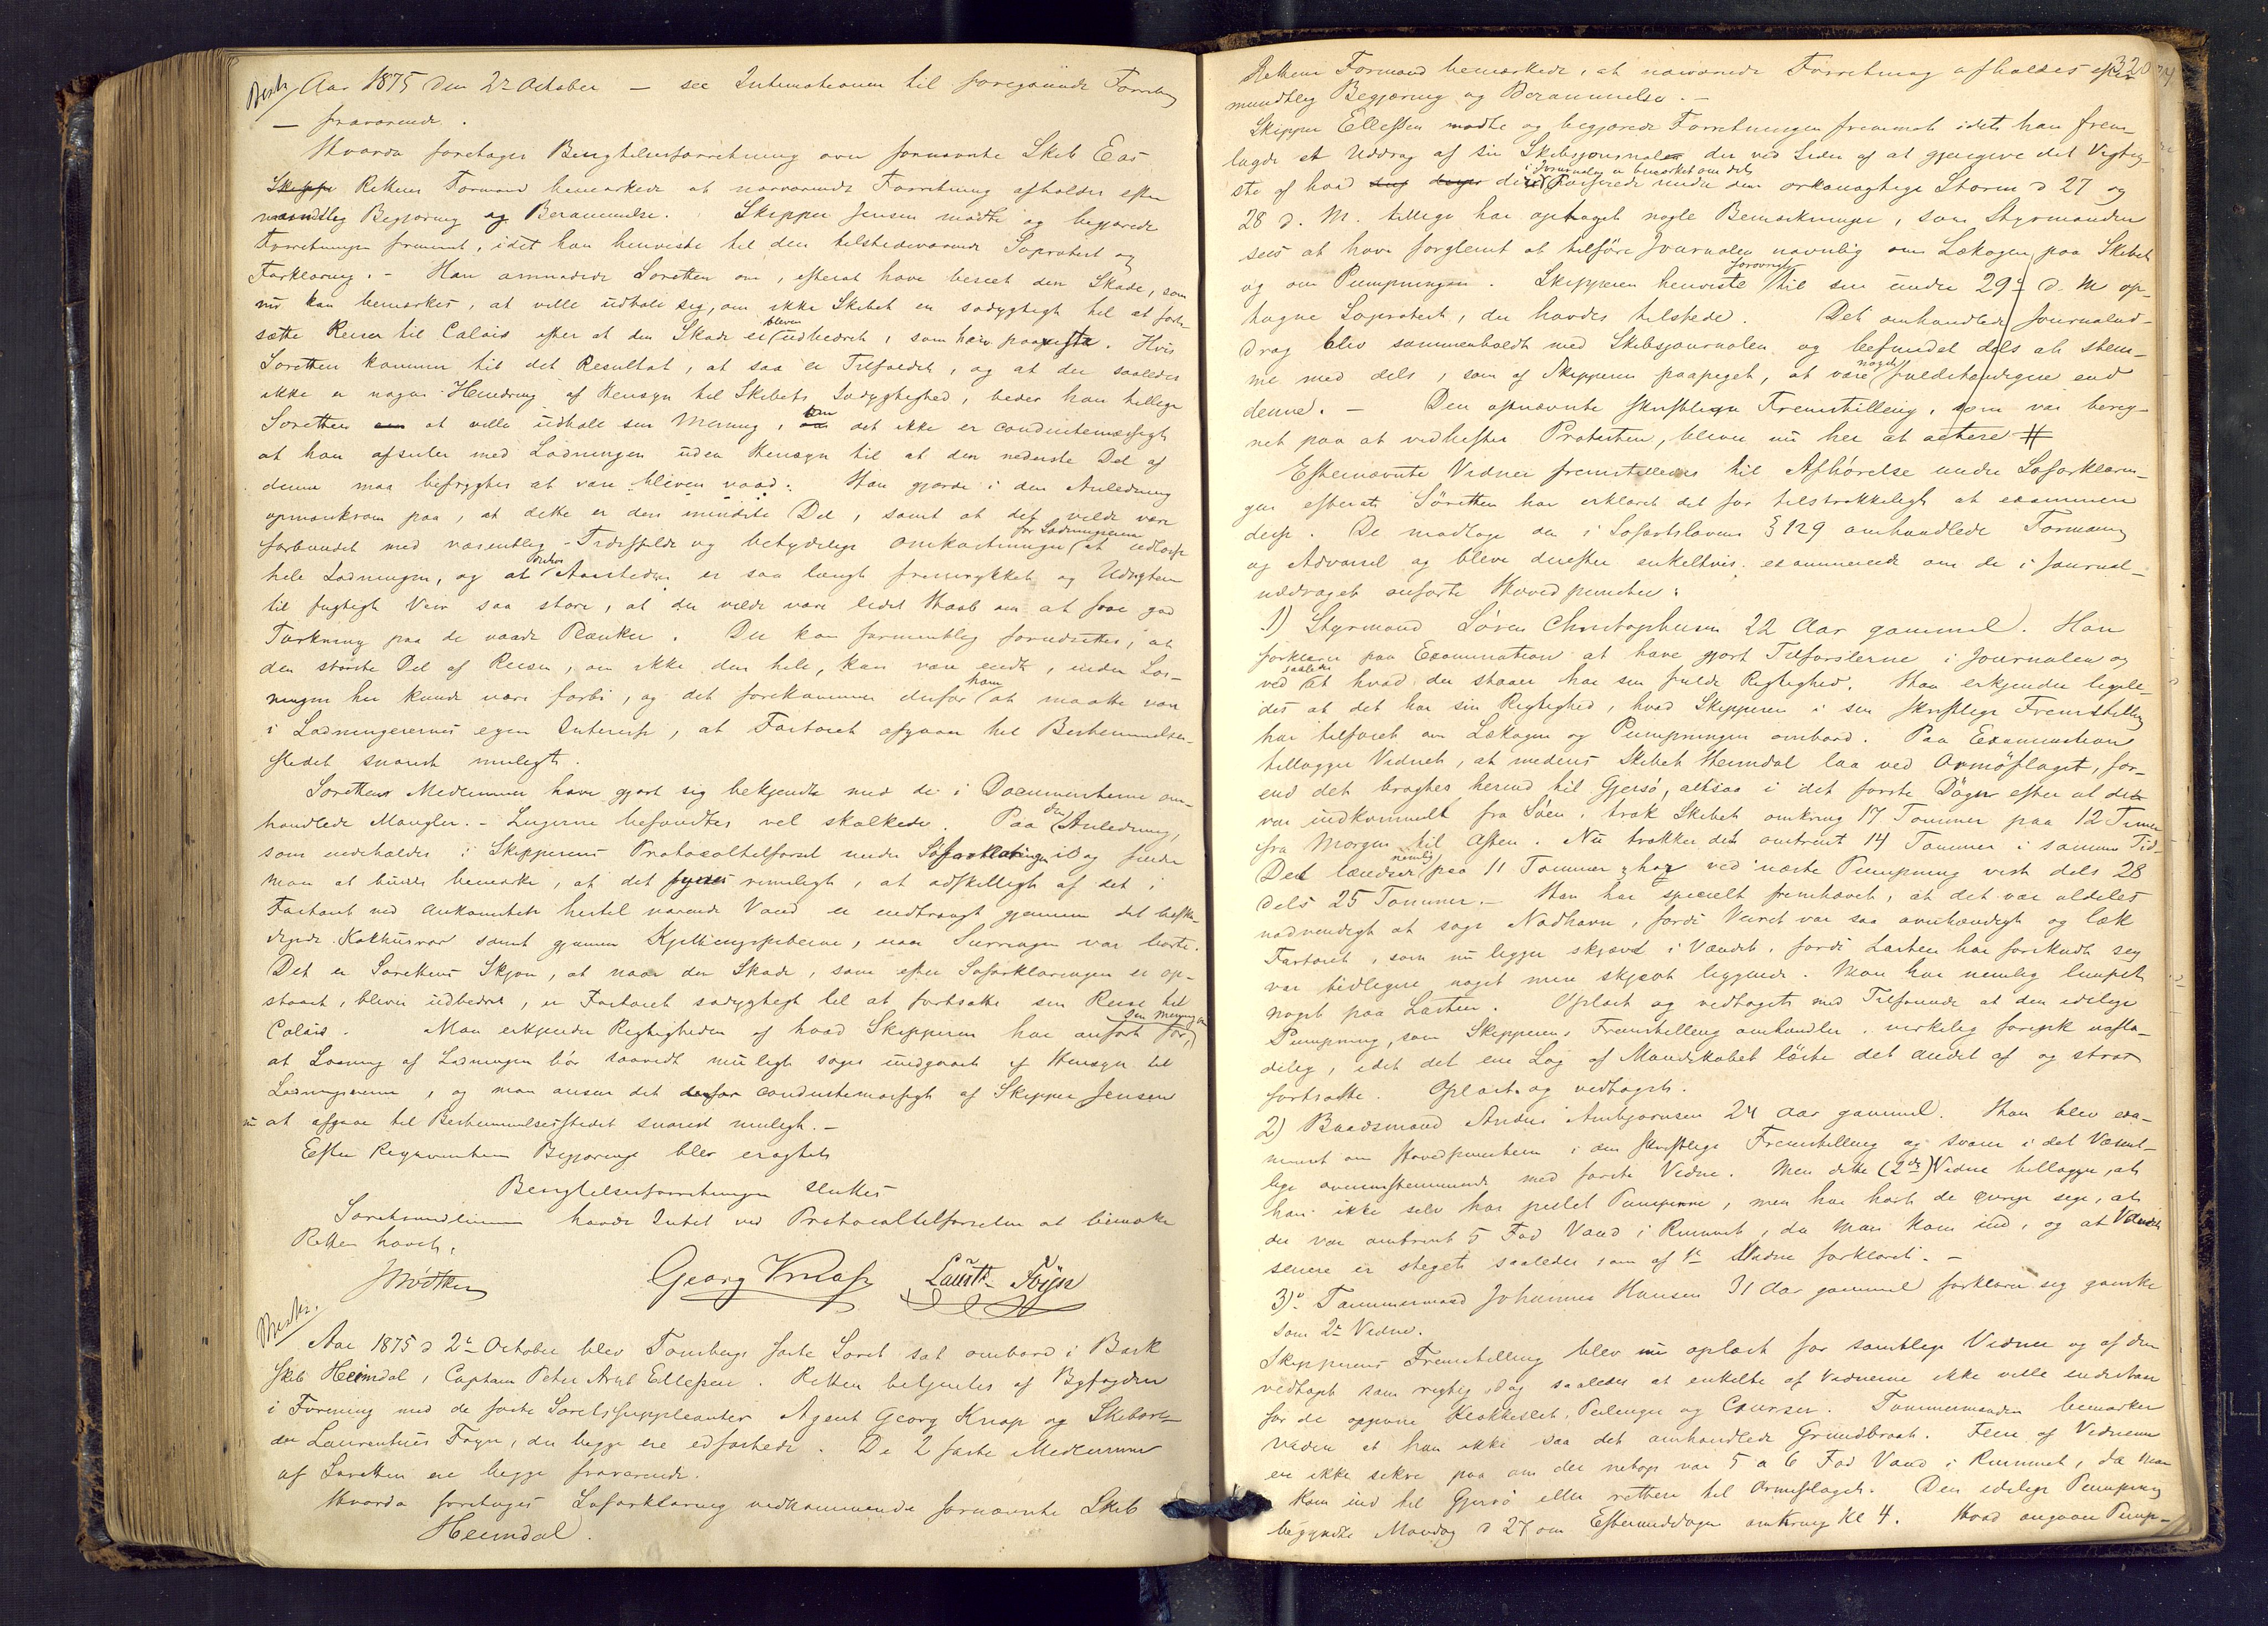 Besk. Aar 1875 den 2den October — see Intimationen til foregaaende Forretning
— fraværende.
Hvorda foretages Besigtelsesforretning over fornævnte Skib Eos
Skipper Rettens Formand bemærkede at nærværende Forretning afholdes efter
mundtlig Begjæring og Berammelse. Skipper Jensen mødte og begjærede
Forretningen fremmet, idet han henviste til den tilstedeværende Søprotest og
Forklaring. – Han anmodede Søretten om, efterat have beseet den Skade, som
nu kan bemærkes, at ville udtale sig, om ikke Skibet er sødygtigt til at fort-
sætte Reisen til Calais efter at den Skade er bleven udbedret, som her paavistes. Hvis
Søretten kommer til det Resultat, at saa er Tilfældet, og at der saaledes
ikke er nogen Hindring af Hensyn til Skibets Sødygtighed, beder han tillige
Søretten om at ville udtale sin Mening, om det ikke er conduitemæssigt
at han afseiler med Ladningen uden Hensyn til at den nederste Del af
denne maa befrygtes at være bleven vaad. Han gjorde i den Anledning
opmærksom paa, at dette er den mindste Del, samt at det vilde være
forbundet med væsentlig Tidsspilde og betydelige Omkostninger for Ladningseieren at udlosse
hele Ladningen, og at Aarstiden er saa langt fremrykket og Udsigten
til fugtigt Veir saa store, at der vilde være lidet Haab om at faae god
Tørkning paa de vaade Planker. Der kan formentlig forudsættes, at
den største Del af Reisen, om ikke den hele, kan være endt, inden Los-
ningen her kunde være forbi, og det forekommer derfor ham at maatte være
i Ladningseiernes egen Interesse, at Fartøiet afgaaer til Bestemmelses-
stedet snarest muligt.
Sørettens Medlemmer have gjort sig bekjendte med de i Documenterne om-
handlede Mangler. – Lugerne befandtes vel skalkede. Paa den Anledning,
som indeholdes i Skipperens Protocoltilførsel under Søforklaringen idag finder
man at burde bemærke, at det synes rimeligt, at adskilligt af det i
Fartøiet ved Ankomsten hertil værende Vand er indtrængt gjennem det beska-
digede Kokhusrør samt gjennem Kjettingspiberne, naar Surringen var borte.
Det er Sørettens Skjøn, at naar den Skade, som efter Søforklaringen er op-
staaet, bliver udbedret, er Fartøiet sødygtigt til at fortsætte sin Reise til
Calais. Man erkjender Rigtigheden af hvad Skipperen har anført for sin Mening om,
at Losning af Ladningen bør saavidt muligt søges undgaaet af Hensyn til
Ladningseierne, og man anser det derfor conduitemæssigt af Skipper Jensen
nu at afgaae til Bestemmelsesstedet snarest muligt. –
Efter Reqvirentens Begjæring blev eragtet
Besigtelsesforretningen sluttes
Søretsmedlemmerne havde Intet ved Protocoltilførselen at bemærke
Retten hævet.
Georg Knap Laurts. Føyn
Besk. Aar 1875 d 2den October blev Tønsbergs faste Søret sat ombord i Bark
skib Heimdal, Captain Peter Arnt Ellefsen. Retten betjentes af Byfogden
i Forening med de faste Søretssuppleanter Agent Georg Knap og Skibsrhe-
der Laurentius Føyn, der begge ere edfæstede. De 2 faste Medlemmer
af Søretten ere begge fraværende.
Hvorda foretoges Søforklaring vedkommende fornævnte Skib
Heimdal.
320
Rettens Formand bemærkede, at nærværende Forretning afholdes efter
mundtlig Begjæring og Berammelse. –
Skipper Ellefsen mødte og begjærede Forretningen fremmet idet han frem-
lagde et Uddrag af sin Skibsjournal der ved Siden af at gjengive det Vigtig-
ste af hvad i Journalen er bemærket om det passerede under den orkanagtige Storm d 27 og
28 d. M. tillige har optaget nogle Bemærkninger, som Styrmanden
sees at have forglemt at tilføre Journalen navnlig om Lækagen paa Skibet
og om Pumpningen. Skipperen henviste forøvrigt til sin under 29de d. M op-
tagne Søprotest, der havdes tilstede. Det omhandlede Journalud-
drag blev sammenholdt med Skibsjournalen og befundet dels at stem-
me med dels, som af Skipperen paapeget, at være noget fuldstændigere end
denne. – Den ofnævnte skriftlige Fremstilling, som var bereg-
net paa at vedhefte Protesten, bliver nu her at actere #
Efternævnte Vidner fremstilledes til Afhørelse under Søforklarin-
gen efterat Søretten har erklæret det for tilstrækkeligt at examinere
disse. De modtoge den i Søfartslovens § 129 omhandlede Formaning
og Advarsel og bleve derefter enkeltvis examinerede om de i Journal-
uddraget anførte Hovedpuncter:
1) Styrmand Søren Christophersen 22 Aar gammel. Han
forklarer paa Examination at have gjort Tilførslerne i Journalen og
ved saaledes at hvad der staaer har sin fulde Rigtighed. Han erkjender ligele-
des at det har sin Rigtighed, hvad Skipperen i sin skriftlige Fremstilling
har tilføiet om Lækagen og Pumpningen ombord. Paa Examination
tillægger Vidnet, at medens Skibet Heimdal laa ved Ormöflaget, for-
end det bragtes herind til Gjersø, altsaa i det første Døgn efter at det
var indkommet fra Søen, trak Skibet omkring 17 Tommer paa 12 Timer
fra Morgen til Aften. Nu trækker det omtrent 14 Tommer i samme Tid.
Det lændsede nemlig paa 11 Tommer har ved næste Pumpning vist dels 28
dels 25 Tommer. – Han har specielt fremhævet, at det var aldeles
nødvendigt at søge Nødhavn, fordi Veiret var saa ovnhændigt og læk
Fartøiet, som nu ligger skjævt i Vandet, fordi Lasten har forskudt sig
var tidligere noget mere skjævt liggende. Man har nemlig lempet
noget paa Lasten. Oplæst og vedtaget med Tilføiende at den idelige
Pumpning, som Skipperens Fremstilling omhandler, virkelig foregik uafla-
delig, idet det ene Lag af Mandskabet løste det andet af og strax
fortsatte. Oplæst og vedtaget.
2) Baadsmand Anders Ambjørnsen 24 Aar gammel. Han blev exa-
mineret om Hovedpuncterne i den skriftlige Fremstilling og svarer i det Væsent-
lige overensstemmende med første Vidne. Men dette (2det) Vidne tillægger, at
han ikke selv har peilet Pumperne, men har hørt de øvrige sige, at
der var omtrent 5 Fod Vand i Rummet, da man kom ind, og at Vandet
senere er steget saaledes som af 1ste Vidne forklaret. –
3) Tømmermand Johannes Hansen 31 Aar gammel forklarer sig ganske
som 2det Vidne.
Skipperens Fremstilling blev nu oplæst for samtlige Vidner og af dem
vedtaget som rigtig dog saaledes at enkelte af Vidnerne ikke ville indestaae
for de opgivne Klokkeslet, Peilinger og Courser. Tømmermanden bemærker
videre at han ikke saa det omhandlede Grundbraat. Flere af Vidnerne
ere ikke sikre paa om der netop var 5 a 6 Fod Vand i Rummet, da man
kom ind til Gjersø eller rettere til Ormøflaget. Den idelige Pumpning
begyndte Mandag d 27 om Eftermiddagen omkring Kl 4. Hvad angaaer Pump-